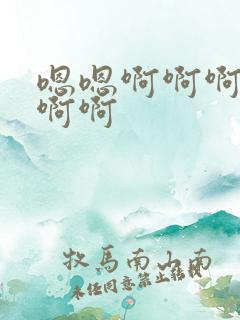 嗯嗯啊啊啊
啊啊
牧马南山南
未经同意禁止转载